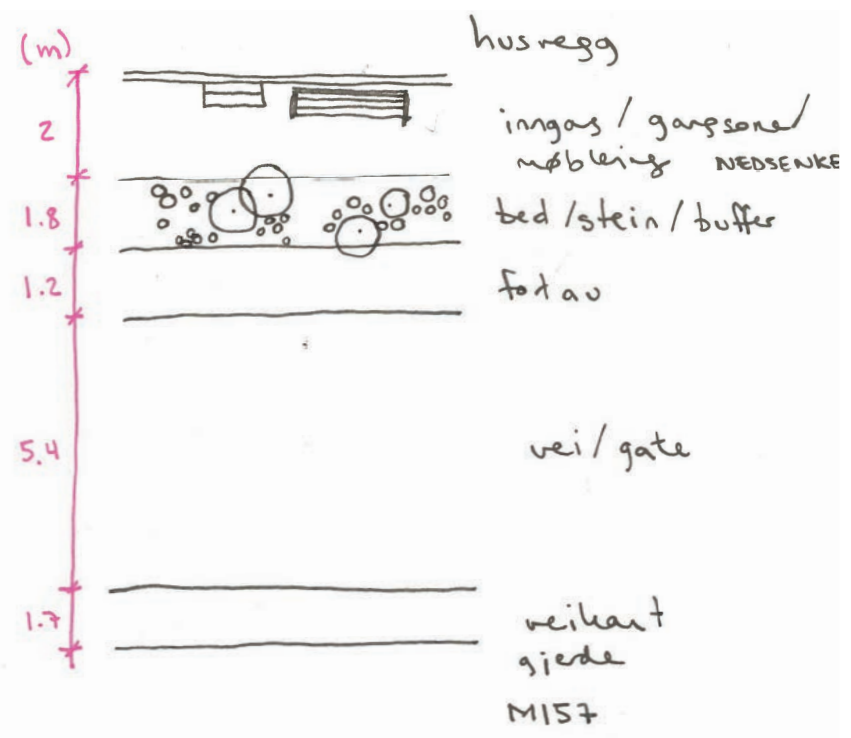 (m)
husvegg
2
inngang / gangsone /
møblering NEDSENKE
1.8
bed / stein / buffer
1.2
fortau
5.4
vei / gate
1.7
veikant
gjerde
M157